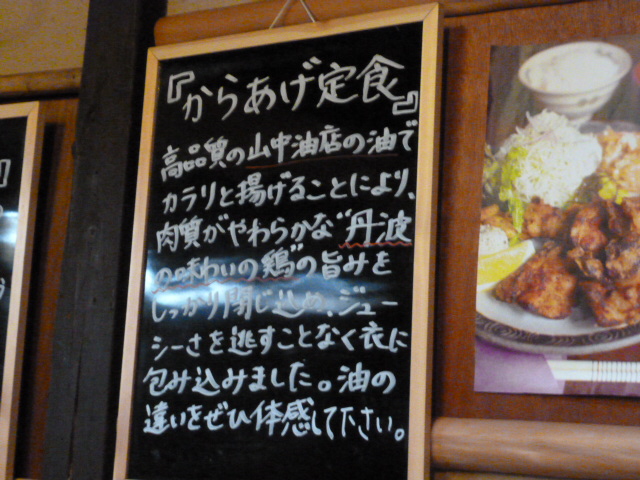 『からあげ定食』
高品質の山中油店の油で
カラリと揚げることにより、
肉質がやわらかな"丹波
の味わいの鶏"の旨みを
しっかり閉じ込め、ジュー
シーさを逃すことなく衣に
包み込みました。油の
違いをぜひ体感して下さい。